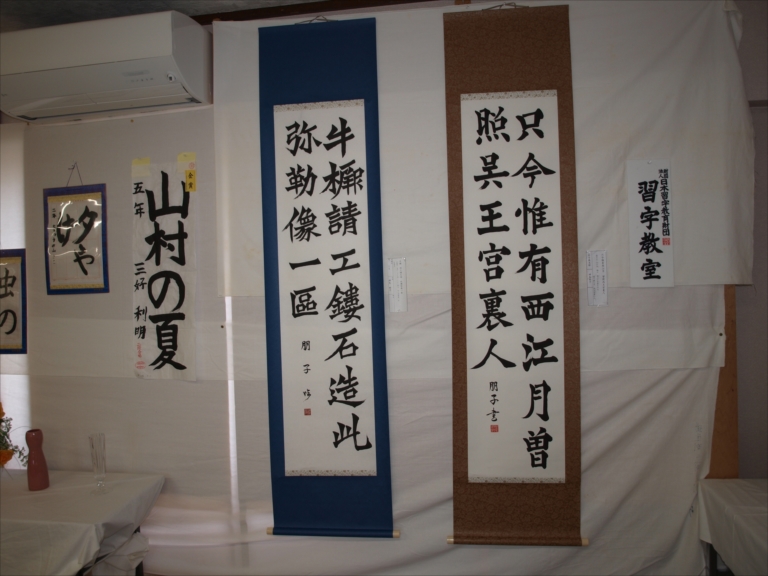 財団法人日本習字教育財団
習字教室
只今惟有西江月曽
照呉王宮裏人
朋子書
牛橛請工鏤石造此
弥勒像一區
朋子
金賞
山村の夏
五年 三好利明
夕や
け
虫の